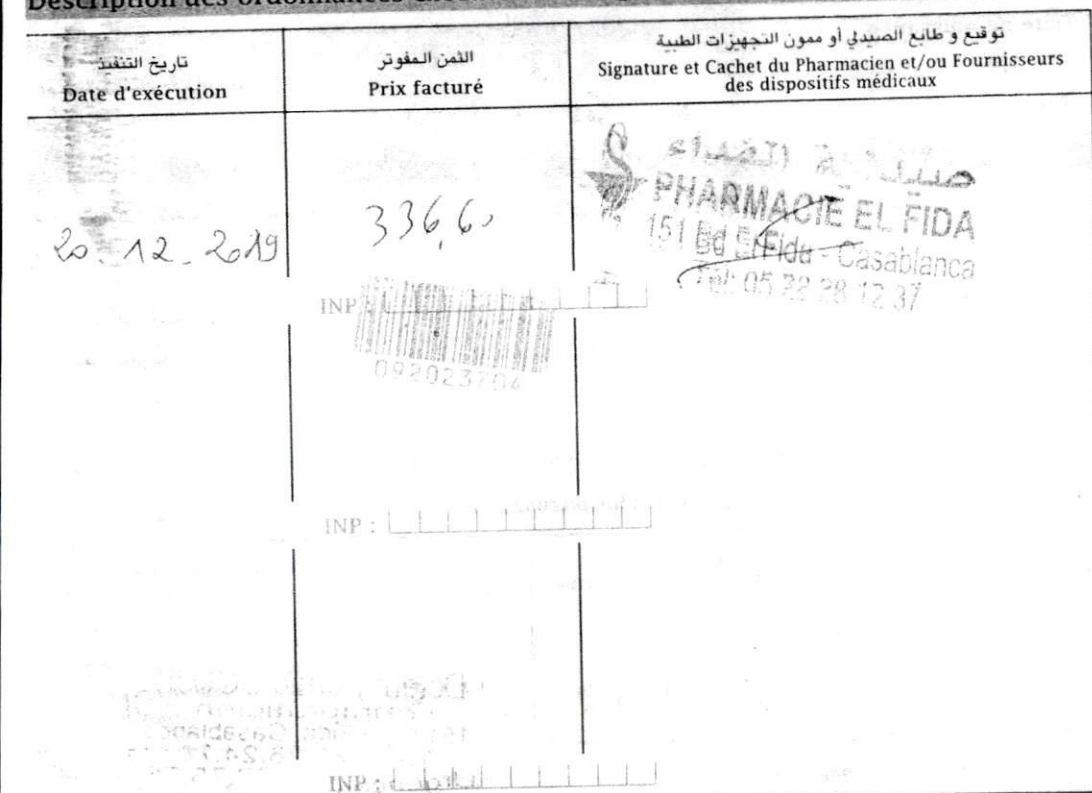 Description des ordonnances
تاريخ التنفيذ
Date d'exécution
الثمن المفوتر
Prix facturé
توقيع و طابع الصيدلي أو ممون التجهيزات الطبية
Signature et Cachet du Pharmacien et/ou Fournisseurs
des dispositifs médicaux
20.12.2019
336,60
صيدلية الفداء
PHARMACIE EL FIDA
151 Bd El Fida - Casablanca
Tél: 05 22 28 12 37
INP :
092023704
INP :
INP :